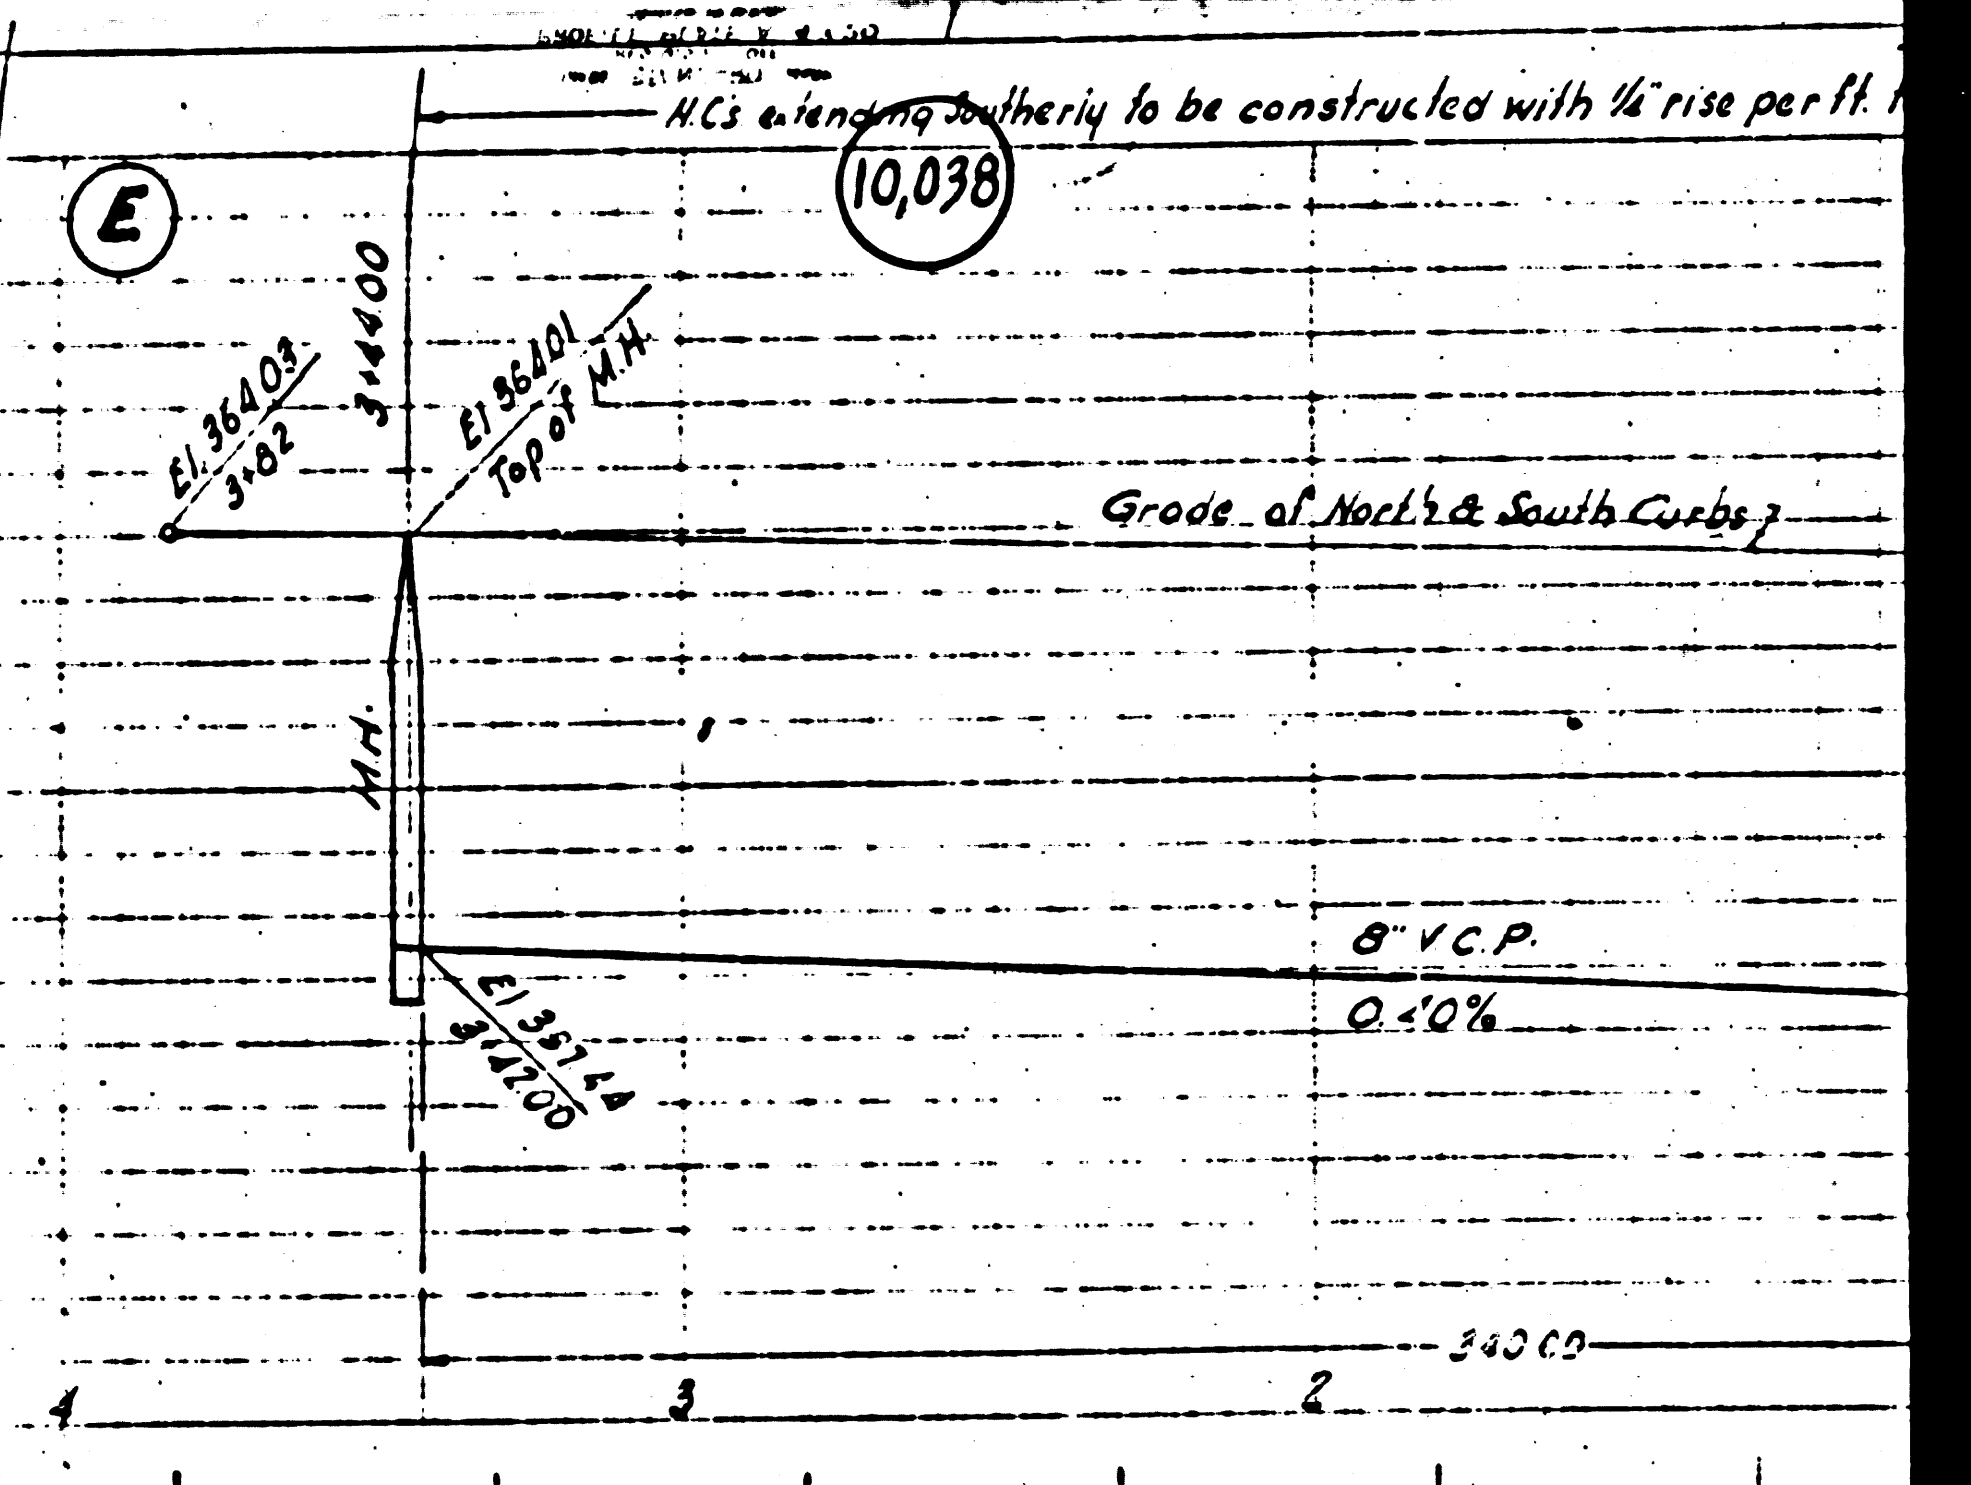 H.C's extending Southerly to be constructed with 1/4" rise per ft.
10,038
E
3+44.00
El. 364.03
3+82
El 364.01
Top of M.H.
Grade of North & South Curbs
M.H.
8" V.C.P.
El 357
3+42.00
340.00
4
3
2